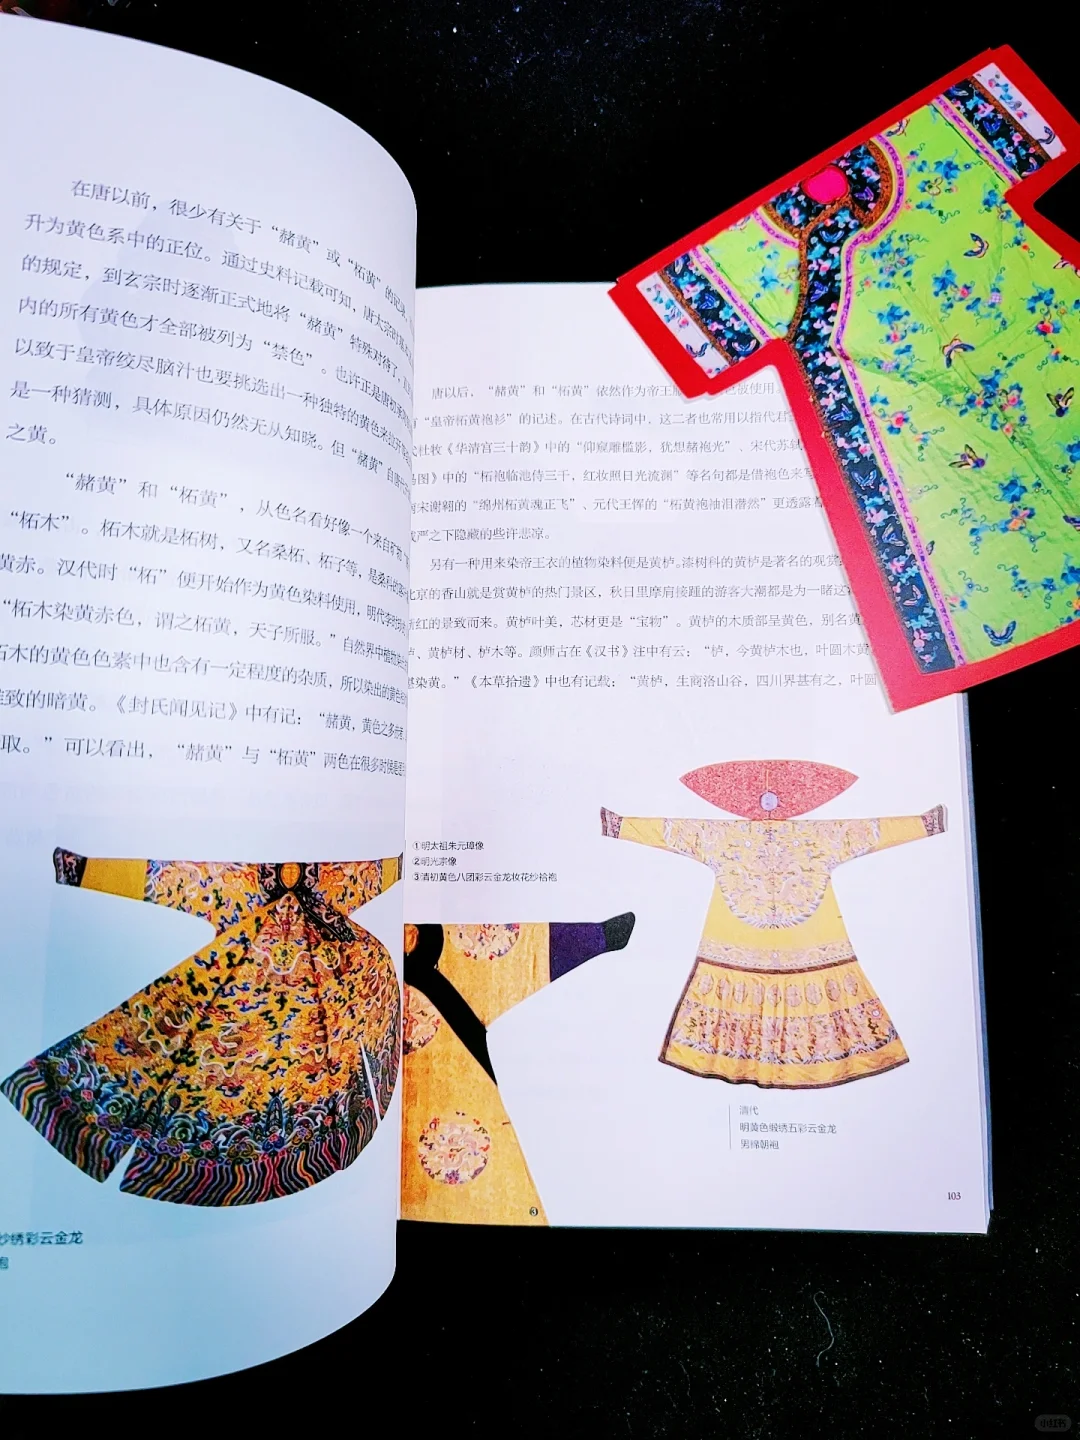 在唐以前，很少有关于“赭黄”或“柘黄”的记
升为黄色系中的正位。通过史料记载可知，唐太宗时
的规定，到玄宗时逐渐正式地将“赭黄”特殊对待了，
内的所有黄色才全部被列为“禁色”。也许正是唐初
以致于皇帝绞尽脑汁也要挑选出一种独特的黄色来
是一种猜测，具体原因仍然无从知晓。但“赭黄”自唐
之黄。
“赭黄”和“柘黄”，从色名看好像一个来自矿
“柘木”。柘木就是柘树，又名桑柘、柘子等，是桑科
黄赤。汉代时“柘”便开始作为黄色染料使用，明代
“柘木染黄赤色，谓之柘黄，天子所服。”自然界中
木的黄色色素中也含有一定程度的杂质，所以染出的黄色
致的暗黄。《封氏闻见记》中有记：“赭黄，黄色之多
取。”可以看出，“赭黄”与“柘黄”两色在很多时候是
纱绣彩云金龙
袍
唐以后，“赭黄”和“柘黄”依然作为帝王 色被使用
“皇帝柘黄袍衫”的记述。在古代诗词中，这二者也常用以指代君
杜牧《华清宫三十韵》中的“仰窥雕槛影，犹想赭袍光”、宋代苏轼
图》中的“柘袍临池侍三千，红妆照日光流渊”等名句都是借袍色来
宋谢翱的“绵州柘黄魂正飞”、元代王恽的“柘黄袍油泪潸然”更透露
严之下隐藏的些许悲凉。
另有一种用来染帝王衣的植物染料便是黄栌。漆树科的黄栌是著名的观赏
北京的香山就是赏黄栌的热门景区，秋日里摩肩接踵的游客大潮都是为一睹这
红的景致而来。黄栌叶美，芯材更是“宝物”。黄栌的木质部呈黄色，别名黄
、黄栌材、栌木等。颜师古在《汉书》注中有云：“栌，今黄栌木也，叶圆木黄
染黄。”《本草拾遗》中也有记载：“黄栌，生商洛山谷，四川界甚有之，叶圆
①明太祖朱元璋像
②明光宗像
③清初黄色八团彩云金龙妆花纱袷袍
③
清代
明黄色缎绣五彩云金龙
男绵朝袍
103
小红书